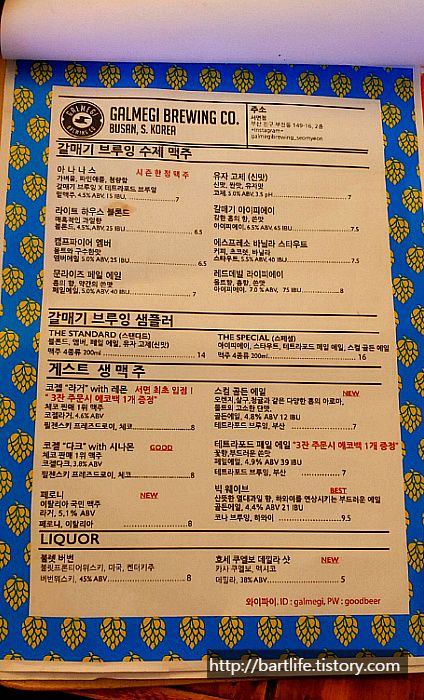 GALMEGI BREWING CO.
BUSAN, S. KOREA
주소
서면점
부산 진구 부전동 149-16, 2층
<instagram>
galmegibrewing_seomyeon
갈매기 브루잉 수제 맥주
아 나 나 스 시즌한정맥주
가벼움, 파인애플, 청량함
갈매기 브루잉 X 테트라포드 브루잉
밀맥주, 4.5% ABV, 15 IBU 7
라이트 하우스 블론드
매혹적인 과일향
블론드, 4.5% ABV, 25 IBU 6.5
캠프파이어 엠버
몰트와 구수한맛
엠버에일 5.0% ABV, 25 IBU 6.5
문라이즈 페일 에일
홉의 향, 약간의 쓴맛
페일에일, 5.0% ABV, 40 IBU 7
유자 고제 (신맛)
신맛, 짠맛, 유자맛
고제, 5.0% ABV, 3.5 pH 7
갈매기 아이피에이
강한 홉의 향, 쓴맛
아이피에이, 6.5% ABV, 65 IBU 7.5
에스프레소 바닐라 스타우트
커피, 초코렛, 바닐라
스타우트, 5.5% ABV, 40 IBU 7.5
레드데빌 라이피에이
몰트향, 홉향, 쓴맛
아이피에이, 7.0 % ABV, 75 IBU 8
갈매기 브루잉 샘플러
THE STANDARD (스탠다드)
블론드, 엠버, 페일 에일, 유자 고제(신맛)
맥주 4종류 200ml 14
THE SPECIAL (스페셜)
아이피에이, 스타우트, 테트라포드 페일 에일, 스컬 골든 에일
맥주 4종류 200ml 16
게스트 생 맥 주
코젤 "라거" with 레몬 서면 최초 입점!
" 3잔 주문시 에코백 1개 증정"
체코 판매 1위 맥주
코젤라거, 4.6% ABV
필젠스키 프레즈드로이, 체코 8
코젤 “다크” with 시나몬 GOOD
체코 판매 1위 맥주
코젤다크, 3.8% ABV
필젠스키 프레즈드로이, 체코 8
페로니 NEW
이탈리아 국민 맥주
라거, 5.1% ABV
페로니, 이탈리아 8
스컬 골든 에일 NEW
오렌지,살구,정귤과 같은 다양한 홉의 아로마,
몰트의 고소한 단맛,
골든에일, 4.8% ABV 12 IBU
테트라포드 브루잉, 부산 7
테트라포드 페일 에일 "3잔 주문시 에코백 1개 증정"
꽃향,부드러운 쓴맛
페일에일, 4.9% ABV 39 IBU
테트라포드 브루잉, 부산 7
빅 웨이브 BEST
산뜻한 열대과일 향, 하와이를 연상시키는 부드러운 에일
골든에일, 4,4% ABV 21 IBU
코나 브루잉, 하와이 9.5
LIQUOR
불렛 버번
불릿프론티어위스키, 미국, 켄터키주
버번위스키, 45% ABV 8
호세 쿠엘보 데킬라 샷 NEW
카사 쿠엘보, 멕시코
데킬라, 38% ABV 5
와이파이. ID : galmegi, PW : goodbeer
http://bartlife.tistory.com